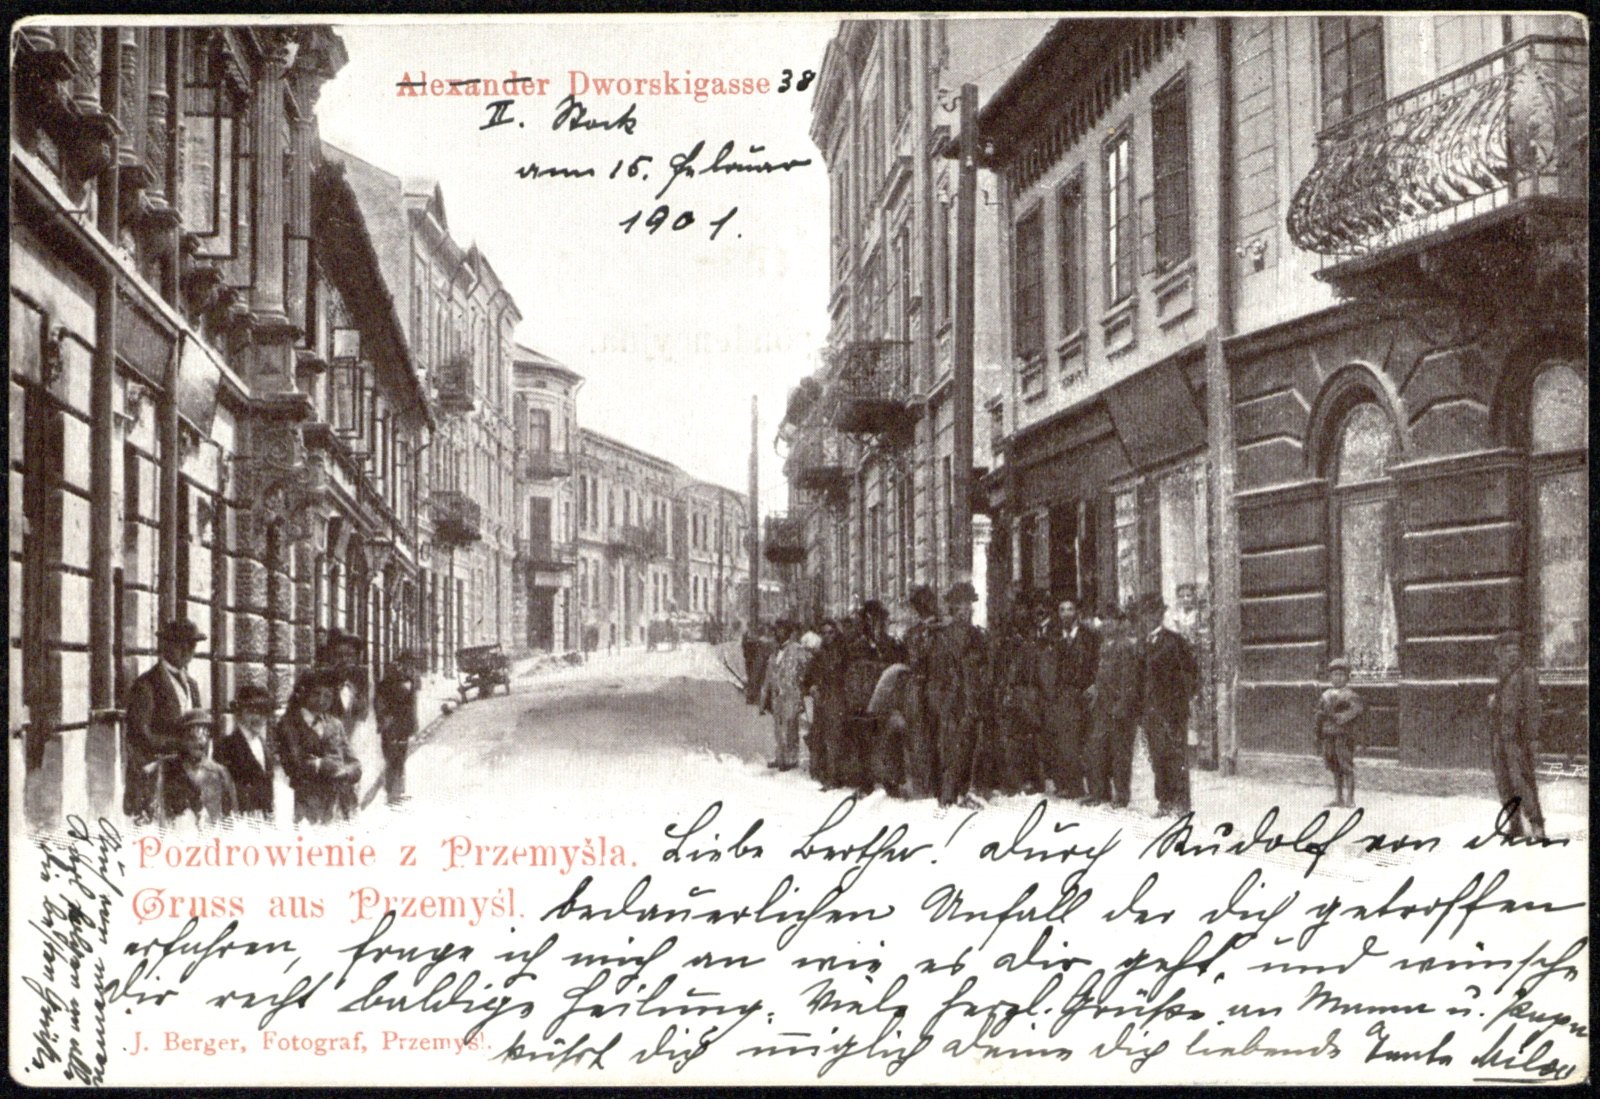 Alexander Dworskigasse 38
II. Stock
am 15. Februar
1901.
Pozdrowienie z Przemyśla.
Gruss aus Przemyśl.
Liebe Bertha! Durch Rudolf von dem
bedauerlichen Unfall der dich getroffen
erfahren, frage ich mich an wie es dir geht, und wünsche
dir recht baldige Heilung. Viele herzl. Grüße an Mama u. Papa
küßt dich inniglich deine dich liebende Tante
J. Berger, Fotograf, Przemyśl.
Auch von meinem
die besten Grüße.